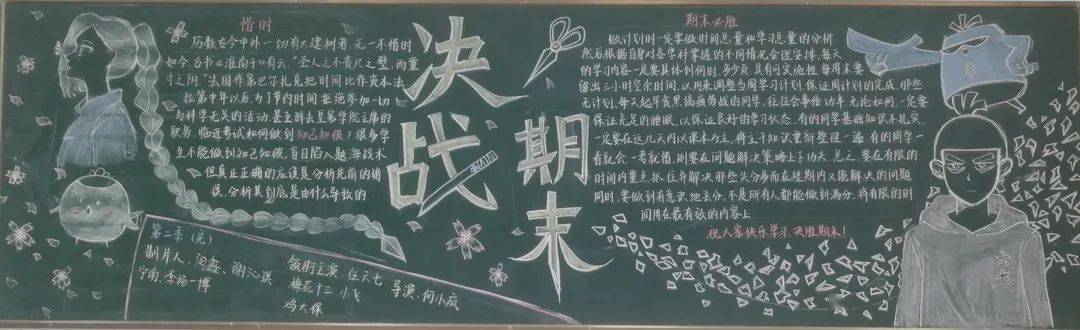 惜时
历数古今中外一切有大建树者,无一不惜时
如今.古书《淮南子》有云:"圣人不贵尺之璧,而重
寸之阴."法国作家巴尔扎克把时间比作资本.法
拉第中年以后,为了节约时间拒绝参加一切
与科学无关的活动,甚至辞去皇家学院主席的
职务.临近考试如何做到知己知彼?很多学
生不能做到知己知彼,盲目陷入题海战术
但真正正确的应该是分析先前的错
误,分析其到底是由什么导致的
第二季(完)
制片人:闵鑫、谢沁琪
宁南、李杨一博
领衔主演:伍六七
梅花十三 小飞
鸡大保
导演:何小疯
决战
期末
期末必胜
做计划时一定要做时间总量和学习总量的分析
然后根据自身对各学科掌握的不同情况合理安排,每天
的学习内容一定要具体到何时,多少页.具有何灵活性.每周末要
留出三小时空余时间,以用来调整当周学习计划.保证周计划的完成.那些
无计划,每天起早贪黑搞疲劳战的同学,往往会事倍功半.无论如何,一定要
保证充足的睡眠,以保证良好的学习状态.有的同学基础知识不扎实,
一定要在这几天内以课本为主,将主干知识重新整理一遍.有的同学一
看就会,一考就错,则要在问题解决策略上下功夫.总之,要在有限的
时间内重点抓住并解决那些失分多而在短期内又能解决的问题
同时,要做到有意识地丢分,不是所有人都能做到满分,将有限的时
间用在最有效的内容上
祝大家快乐学习,决胜期末!
六七